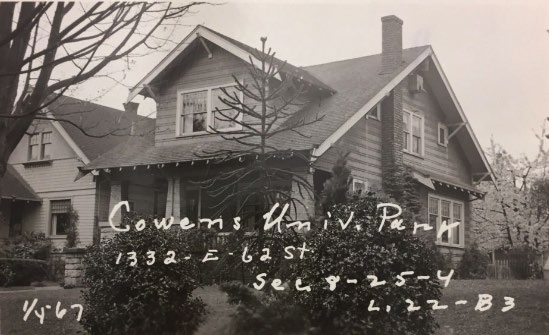 Cowens Univ. Park
1332-E-62 St
Sec 8-25-4
L. 22-B3
1/4-67